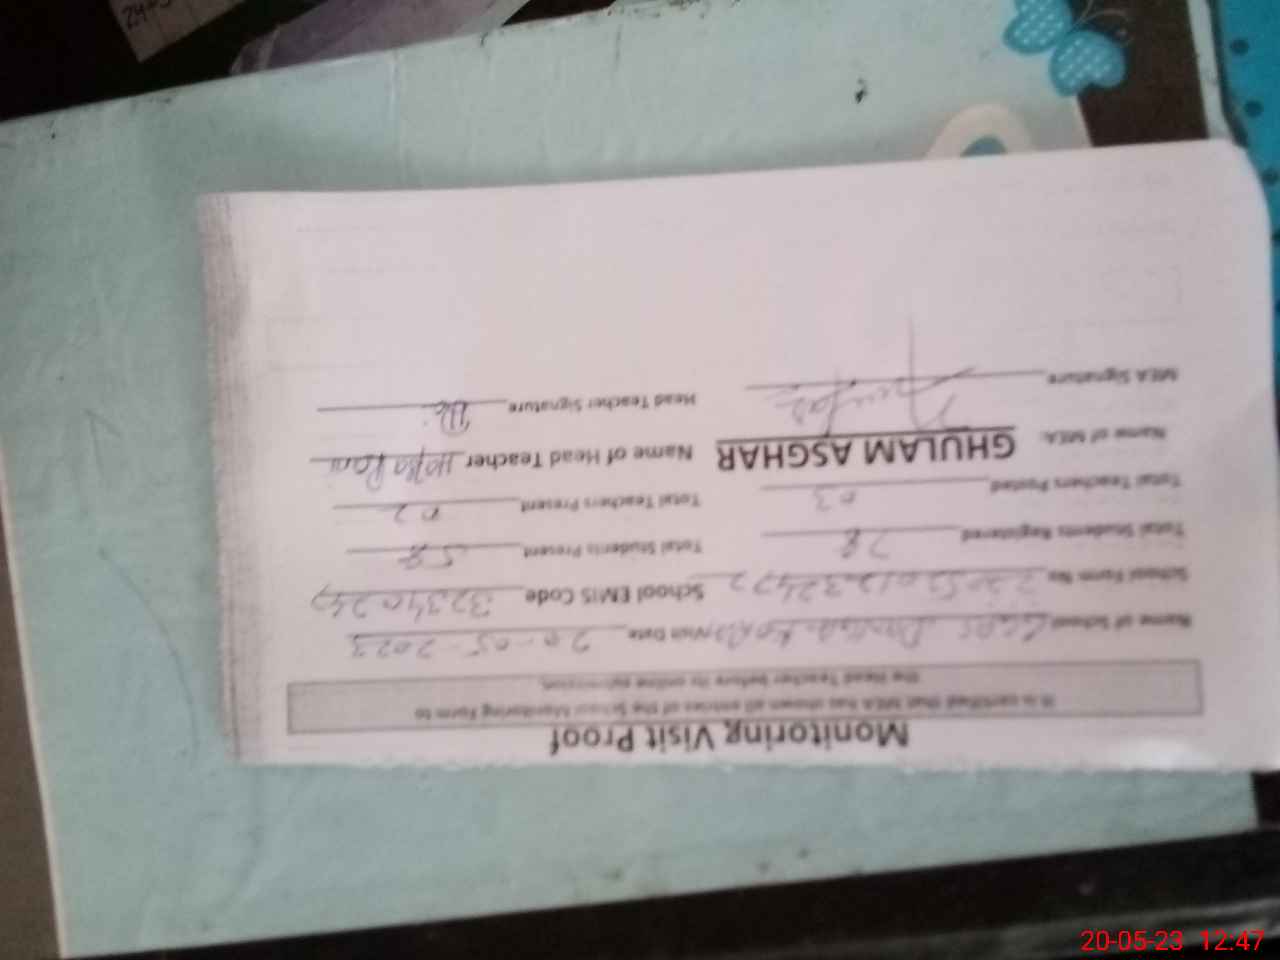 Monitoring Visit Proof
It is certified that MEA has shown all entries of the School Monitoring Form to
the Head Teacher before its online submission.
Name of School Visit Date 20-05-2023
School Form No School EMIS Code
Total Students Registered 78 Total Students Present 58
Total Teachers Posted 03 Total Teachers Present 02
Name of MEA: GHULAM ASGHAR Name of Head Teacher
MEA Signature Head Teacher Signature
20-05-23 12:47